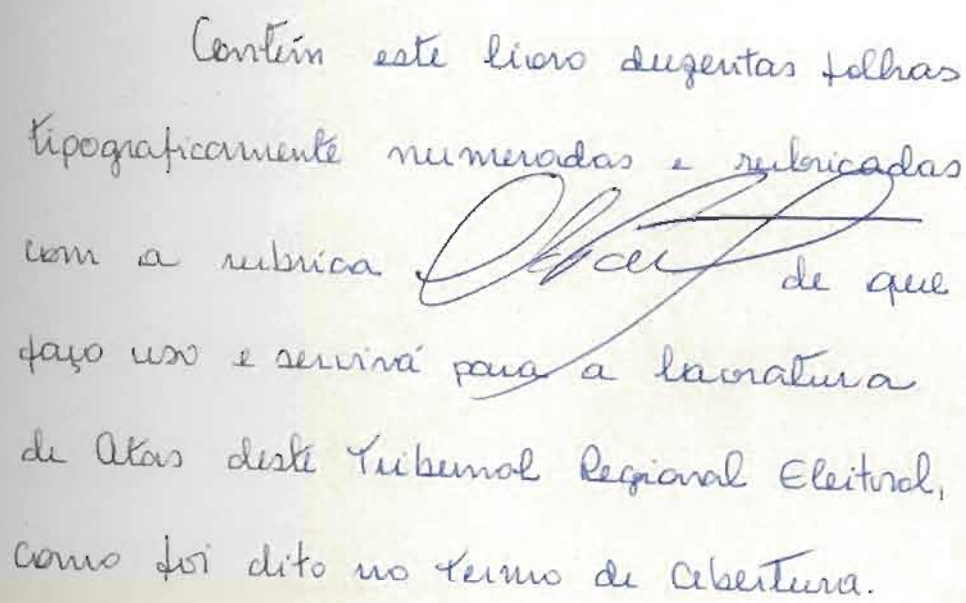 Contém este livro duzentas folhas
tipograficamente numeradas e rubricadas
com a rubrica de que
faço uso e servirá para a lavratura
de Atas deste Tribunal Regional Eleitoral,
como foi dito no termo de Abertura.